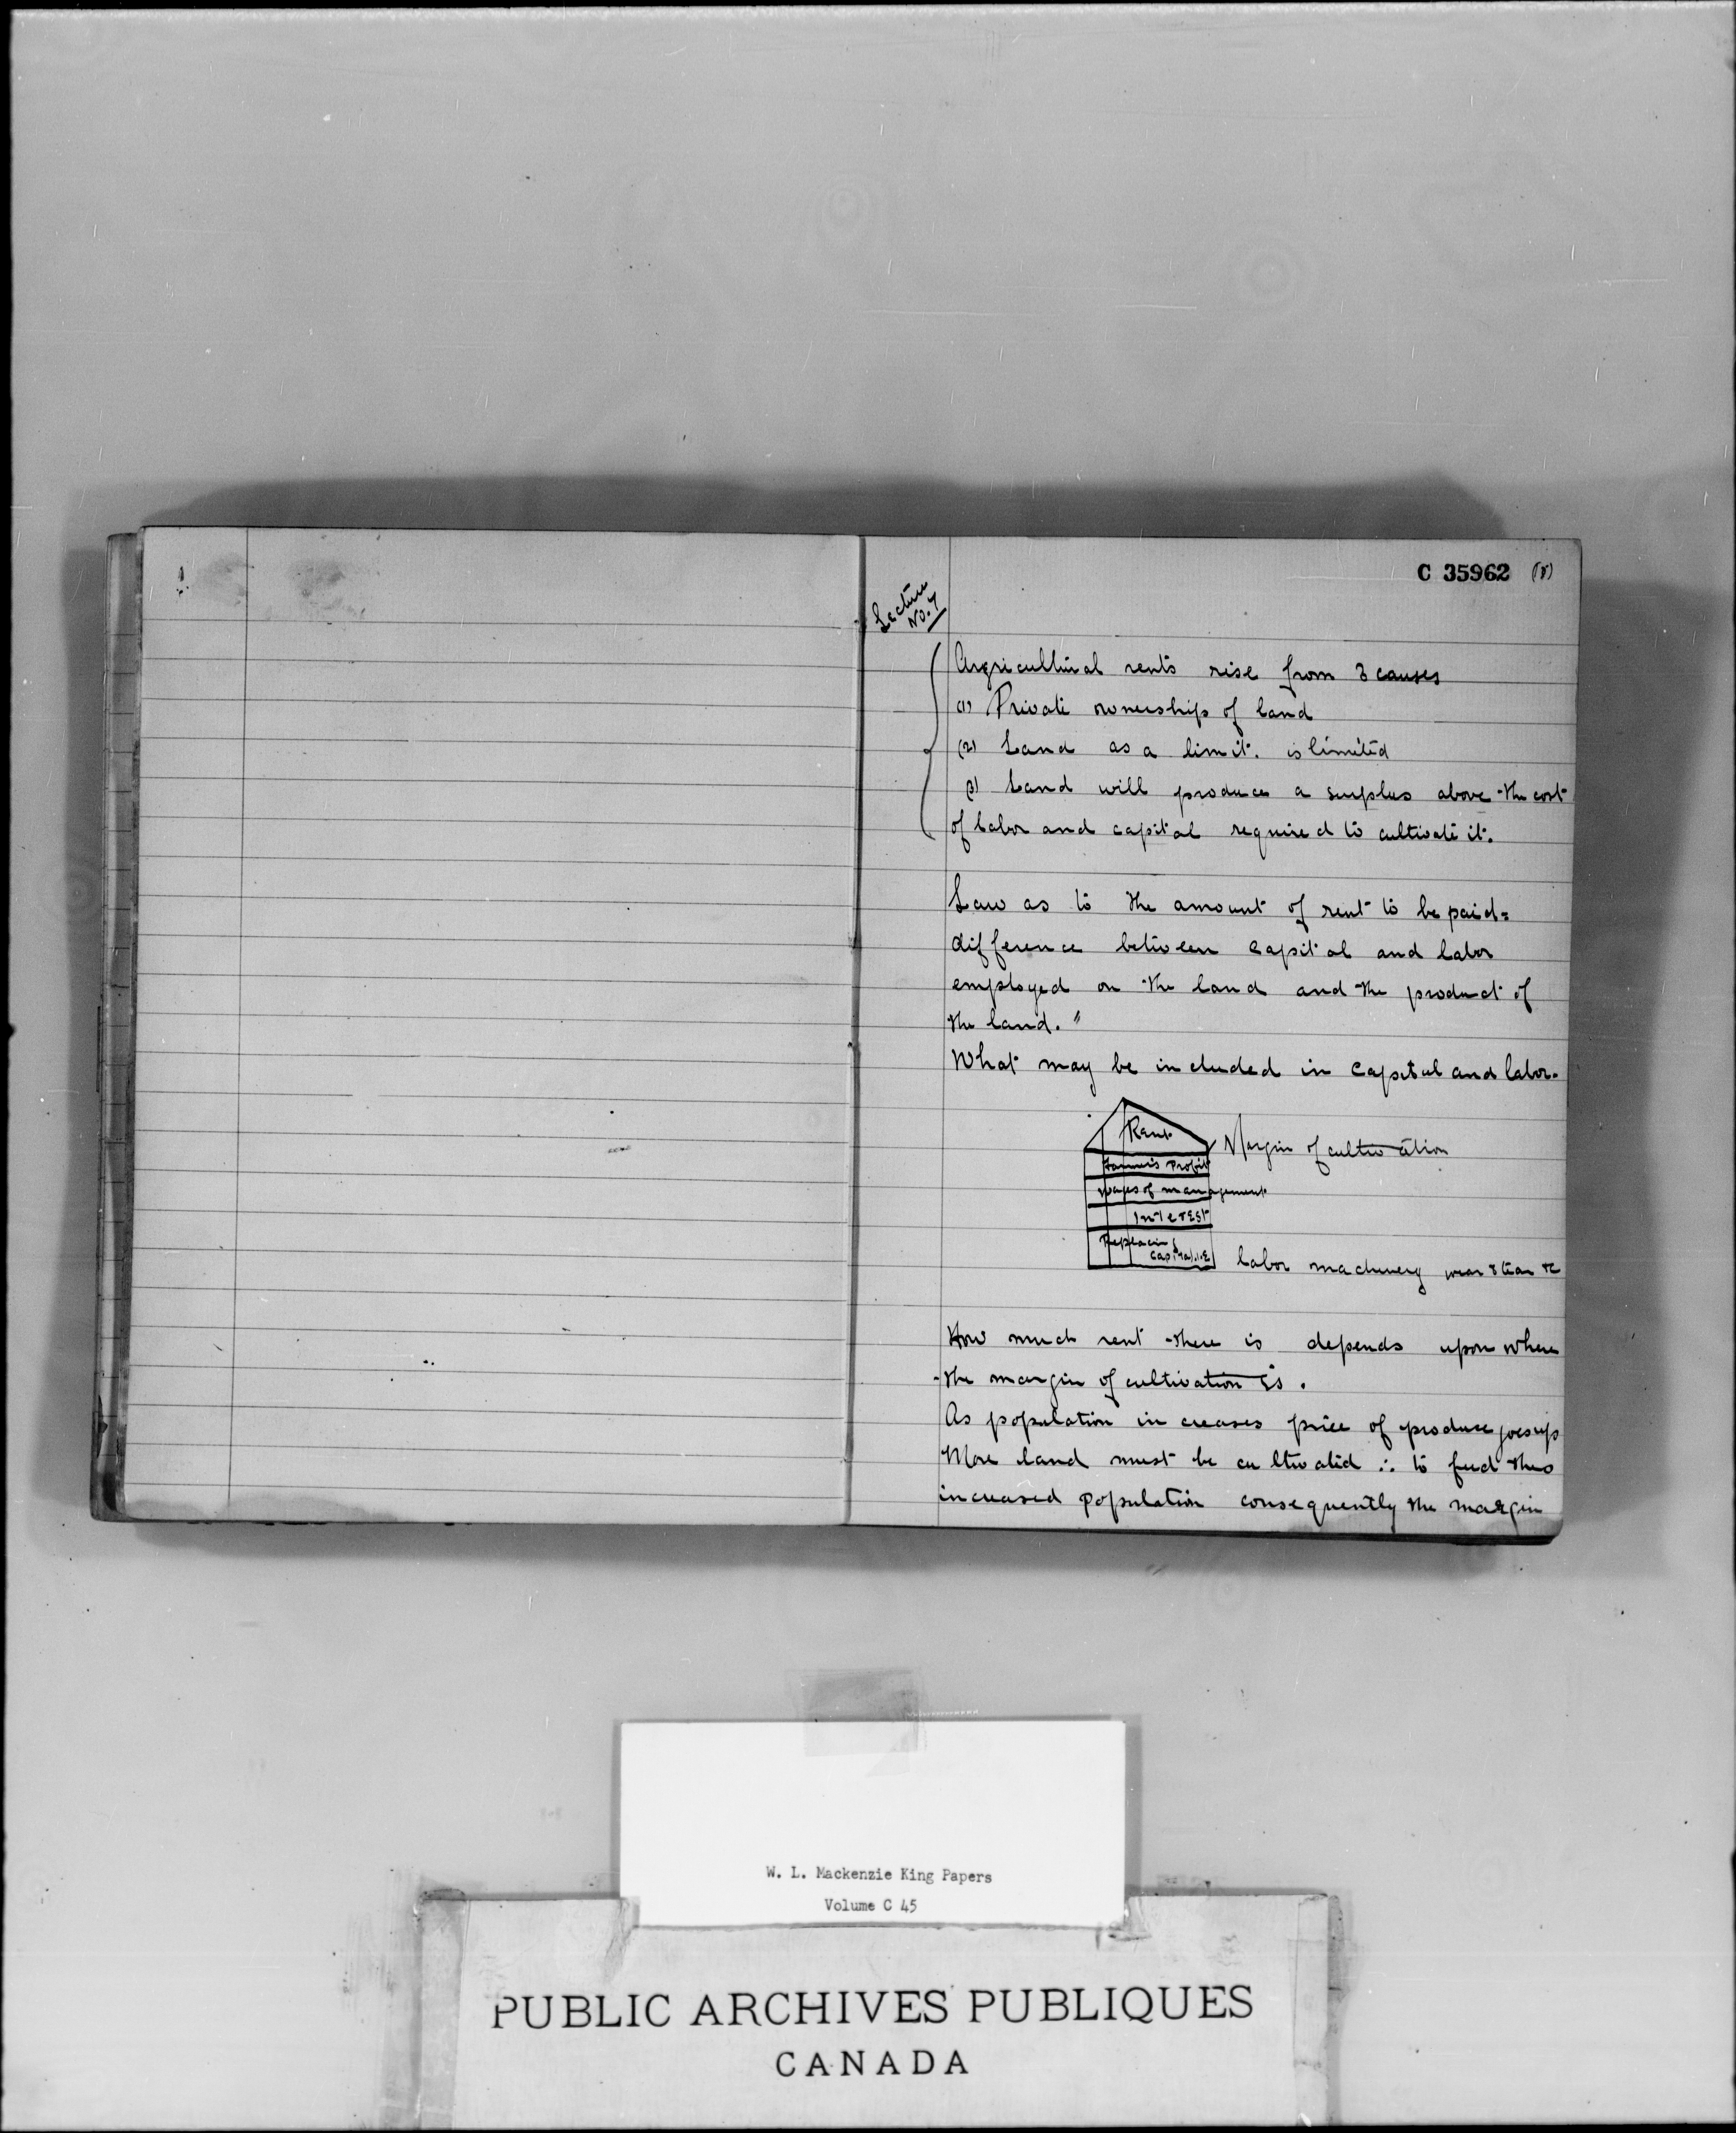 C 35962 (8)
Lecture
No. 7
Agricultural rents rise from 3 causes
(1) Private ownership of land
(2) Land as a limit. is limited
(3) Land will produce a surplus above the cost
of labor and capital required to cultivate it.
Law as to the amount of rent to be paid =
difference between capital and labor
employed on the land and the product of
the land."
What may be included in capital and labor.
Rent
Margin of cultivation
Farmer's Profit
wages of management
Interest
Replacing
capital, i.e.
labor machinery wear & tear &c
How much rent there is depends upon where
the margin of cultivation is.
As population increases price of produce goes up
More land must be cultivated ∴ to feed this
increased population consequently the margin
W. L. Mackenzie King Papers
Volume C 45
PUBLIC ARCHIVES PUBLIQUES
CANADA